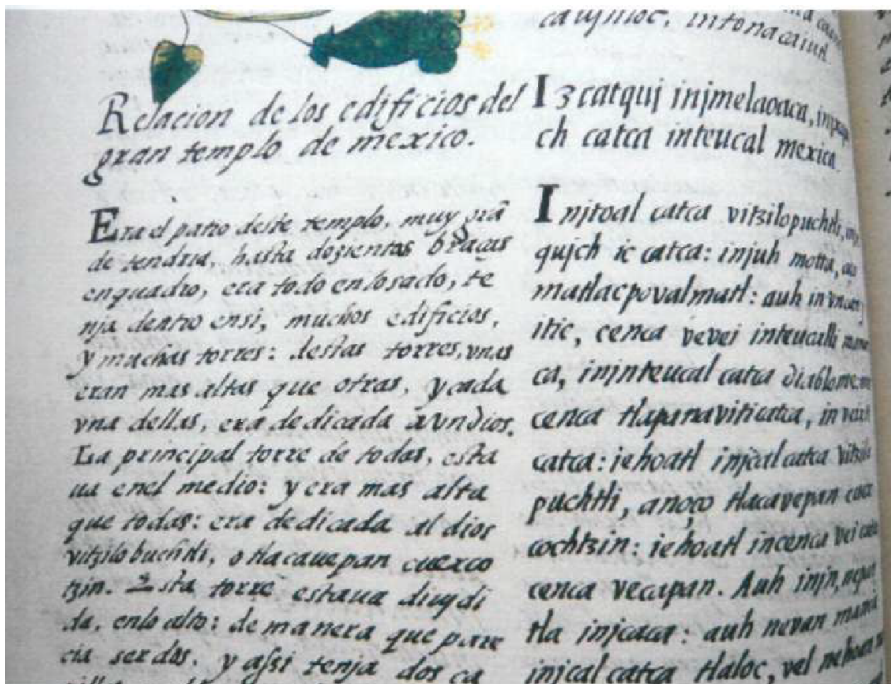 Relacion de los edificios del
gran templo de mexico.
Era el patio deste templo, muy grã
de tendria, hasta dozientas braças
enquadro, era todo enlosado, te
nja dentro ensi, muchos edificios,
y muchas torres: destas torres, vnas
eran mas altas que otras, y cada
vna dellas, era dedicada a vn dios.
La principal torre de todas, esta
ua enel medio: y era mas alta
que todas: era dedicada al dios
vitzilobuchtli, o tlacauepan cuexco
tzin. Esta torre estaua diujdi
da, enlo alto: de manera que pare
cia ser dos, y assi tenja dos ca
intonacaiutl.
Iz catquj injmelaoaca,
ch catca inteucal mexica.
Injtoal catca vitzilopuchtli,
qujch ic catca: injuh motta,
matlacpovalmatl: auh in
itic, cenca vevei inteucalli
ca, ininteucal catca diablome
cenca tlapanaviticatca, in
catca: iehoatl injcal catca vitzilo
puchtli, anoço tlacavepan
cochtzin: iehoatl incenca vei
cenca vecapan. Auh injn, nepan
tla injcaca: auh nevan
injcal catca tlaloc, vel